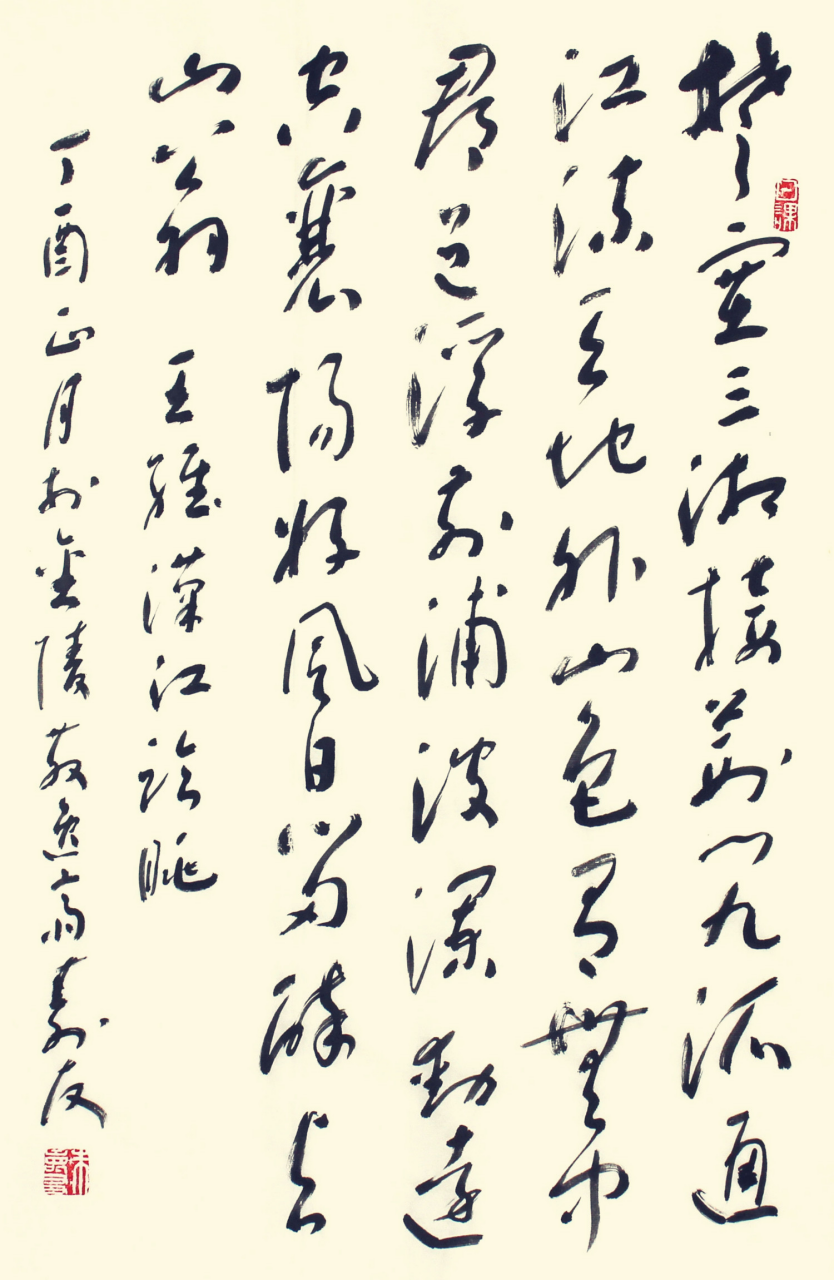 楚塞三湘接荊門九派通
江流天地外山色有無中
郡邑浮前浦波瀾動遠
空襄陽好風日留醉與
山翁 王維漢江臨眺
丁酉正月於金陵散逸齋壽友